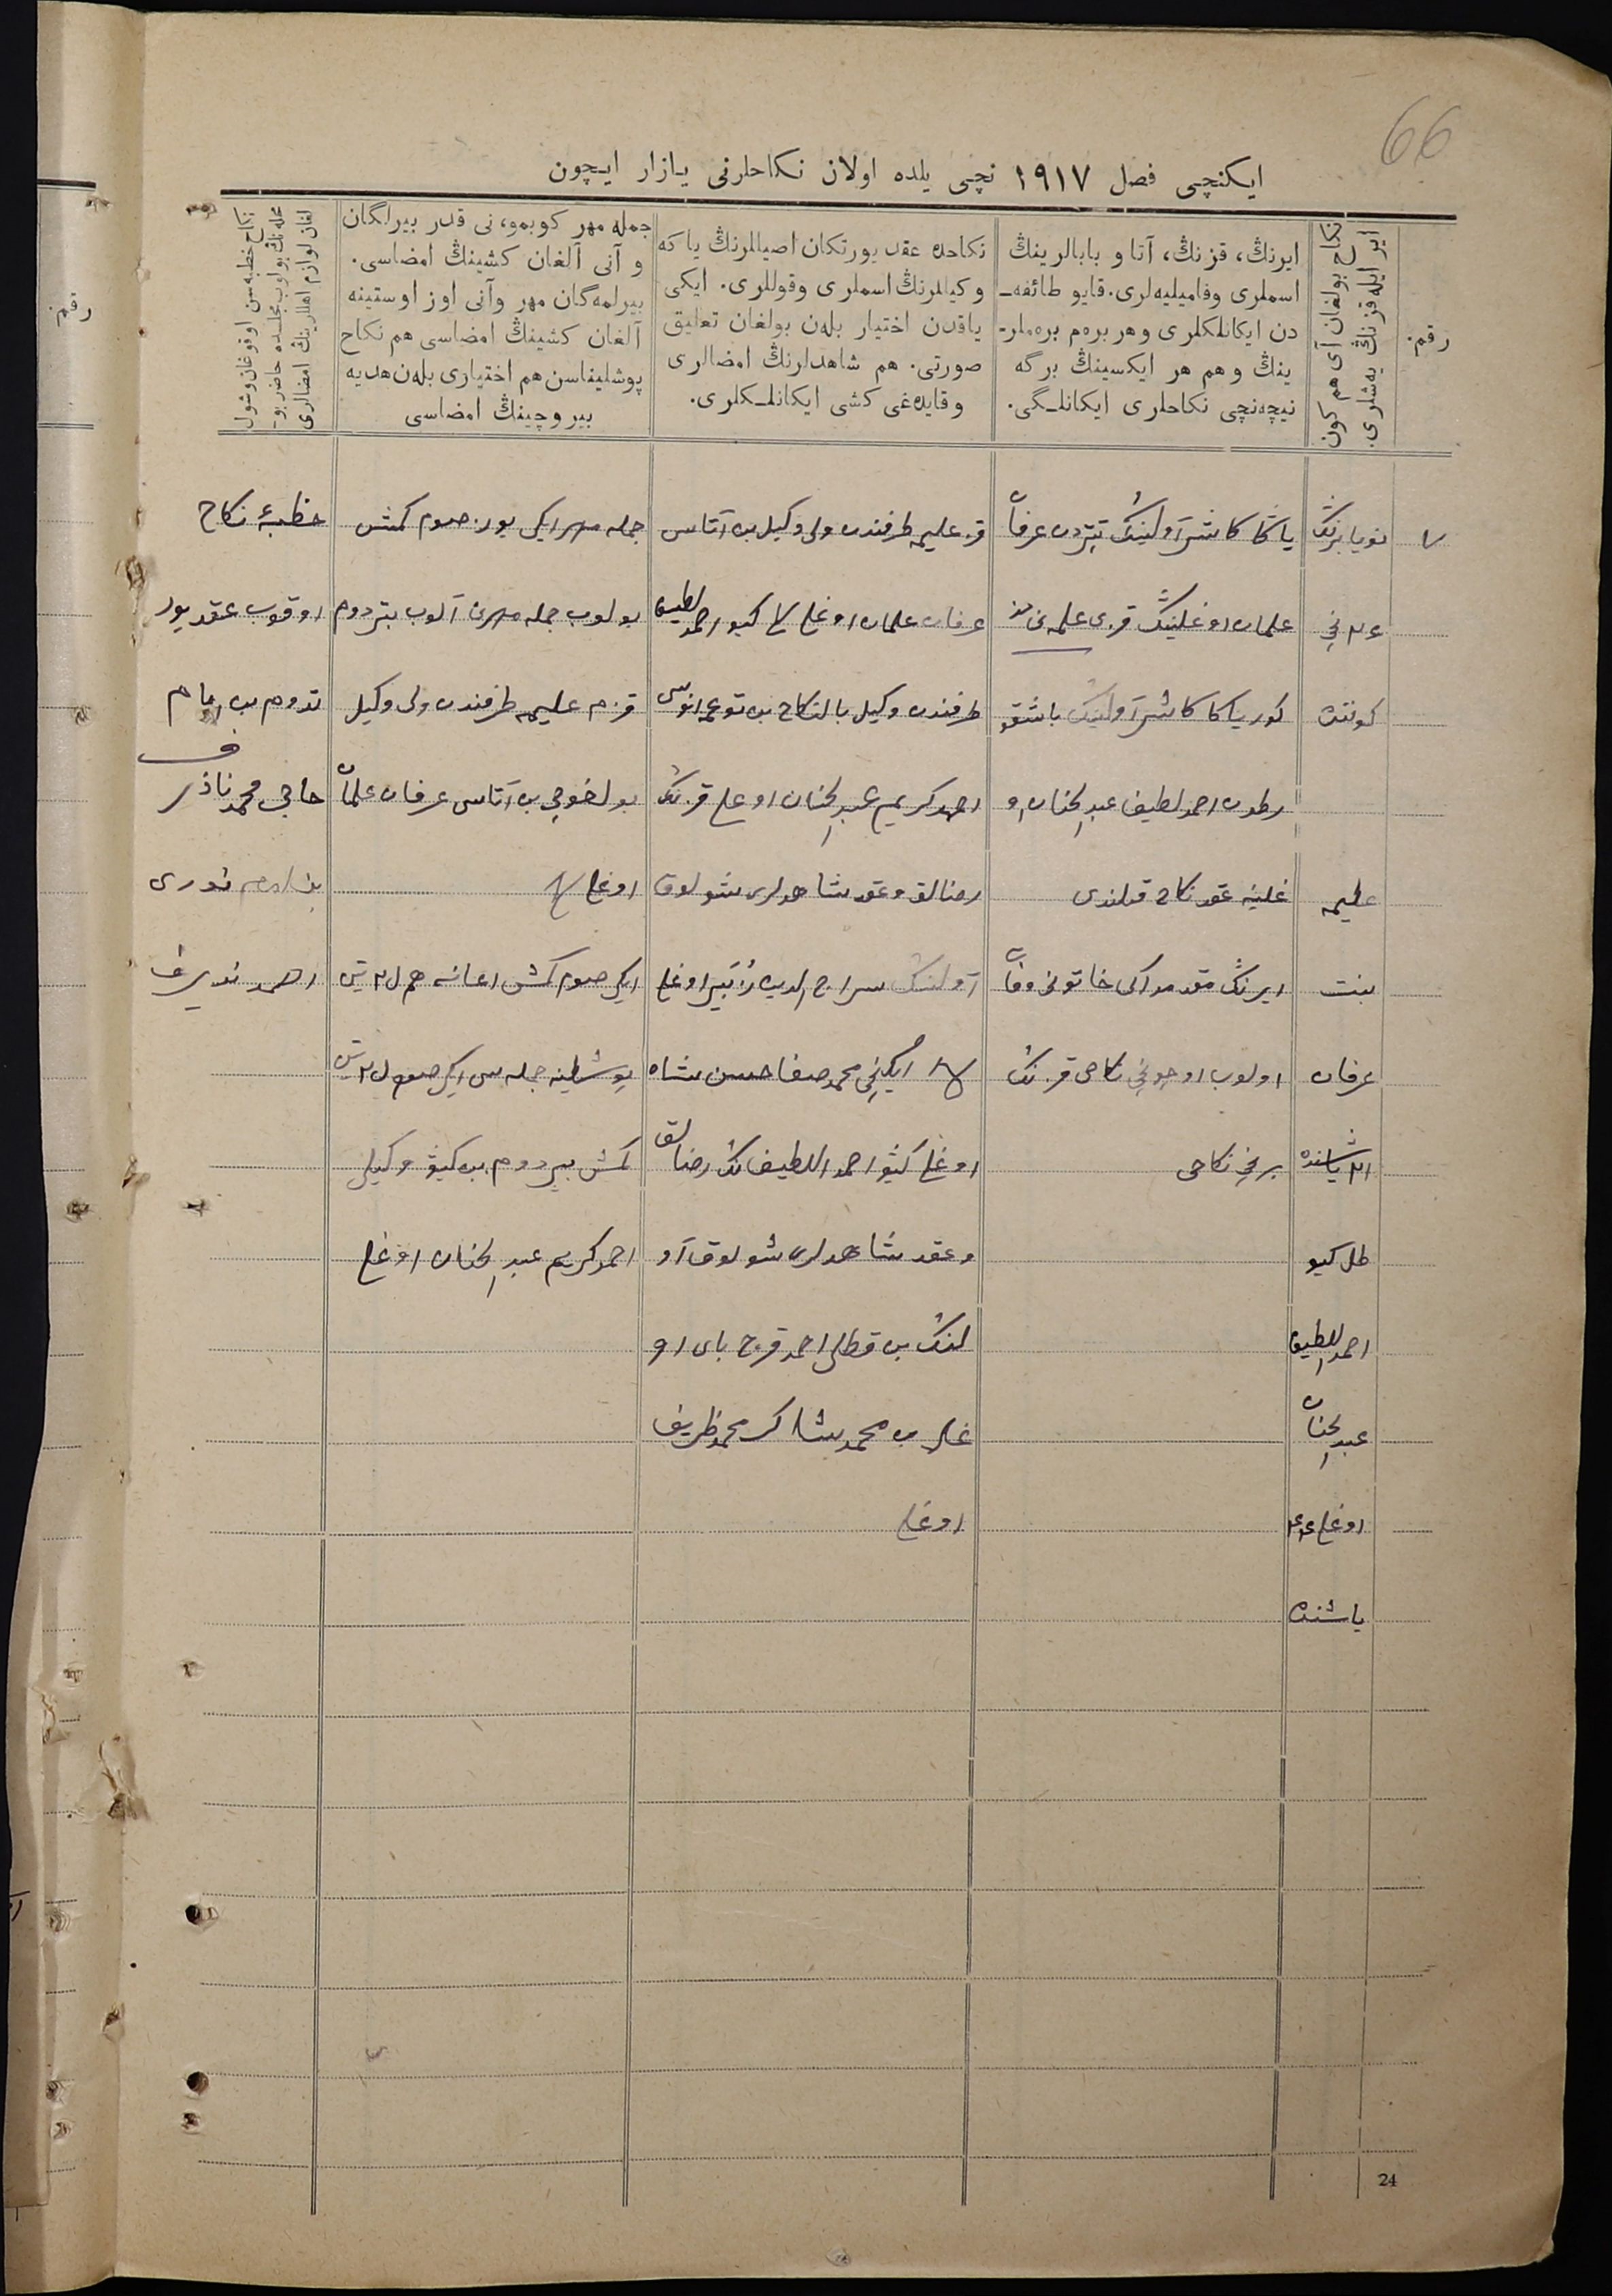 66
ایکنچی فصل ١٩١٧ نچی یلده اولان نکاحلرنی یازار ایچون
رقم.
نکاح بولغان آی هم کون
ایر ایله قز نڭ یەشلری.
ایرنڭ، قزنڭ، آتا و بابالرینڭ
اسملری وفامیلیەلری. قایو طائفه‌ـ
دن ایکانلکلری و هر برەم برەملر-
ینڭ و هم هر ایکسینڭ برگه
نیچەنچی نکاحلری ایکانلـگی.
نکاحده عقد یورتکان اصیاللرنڭ یا که
وکیللرنڭ اسملری وقوللری. ایکی
یاقدن اختیار بلەن بولغان تعلیق
صورتی. هم شاهدلرنڭ امضالری
و قایدەغی کشی ایکانلـکلری.
جمله مهر کوبمو، نی قدر بیرلگان
و آنی آلغان کشینڭ امضاسی.
بیرلمەگان مهر وآنی اوز اوستینه
آلغان کشینڭ امضاسی هم نکاح
پوشلیناسن هم اختیاری بلەن هدیه
بیر وچینڭ امضاسی
نکاح خطبەسن اوقوغان وشول
محله نڭ بولوب مجلسده حاضر بو-
لغان لوازم اهللارینڭ امضالری
٧
نویابرنڭ
٢٤ نچی
کونندە
علیمه
بنت
عرفان
٢١ یاشندە
طل کیو
احمد اللطیف
عبد الحنان
اوغلی ٢٤
یاشندە
یاڭا کاشر آولینڭ تبتردن عرفان
علمان اوغلینڭ قزی علیمه نی
کوریاکا کاشر آولینڭ باشقو
رطدن احمد لطیف عبد الحنان او
غلینه عقد نکاح قلندی
ایرنڭ مقدمداکی خاتونی وفات
اولوب اوچونچی نکاحی قزنڭ
برنچی نکاحی
قز علیمه طرفندن ولی وکیل من آتاسی
عرفان علمان اوغلی کیو احمد لطیف
طرفندن وکیل بالنکاح من توغمه انوسی
احمد کریم عبد الحنان اوغلی قزنڭ
رضالق وعقد شاهدلری شولوق
آولنڭ سراج الدین زبیر اوغلی
ایکنچی محمد صفا حسن شاه
اوغلی کیو احمد اللطیف نڭ رضالق
وعقد شاهدلری شولوق آو
لنڭ من قطلی احمد قزچ بای او
غلی من محمد شاکر محمد ظریف
اوغلی
جمله مهر ایکی یوز صوم کمش
بولوب جمله مهرن آلوب بتردوم
قزم علیمه طرفندن ولی وکیل
بولغوچی من آتاسی عرفان علمان
اوغلی
ایکی صوم کمش اعانه هم ٢٠ تین
پوشلینه جمله سی ایکی صوم ٢٠ تین
کمش بیردوم من کیو وکیلی
احمد کریم عبد الحنان اوغلی
خطبهٔ نکاح
اوقوب عقد یور
تدوم من امام
حاجی محمد ناذر
نوری
24